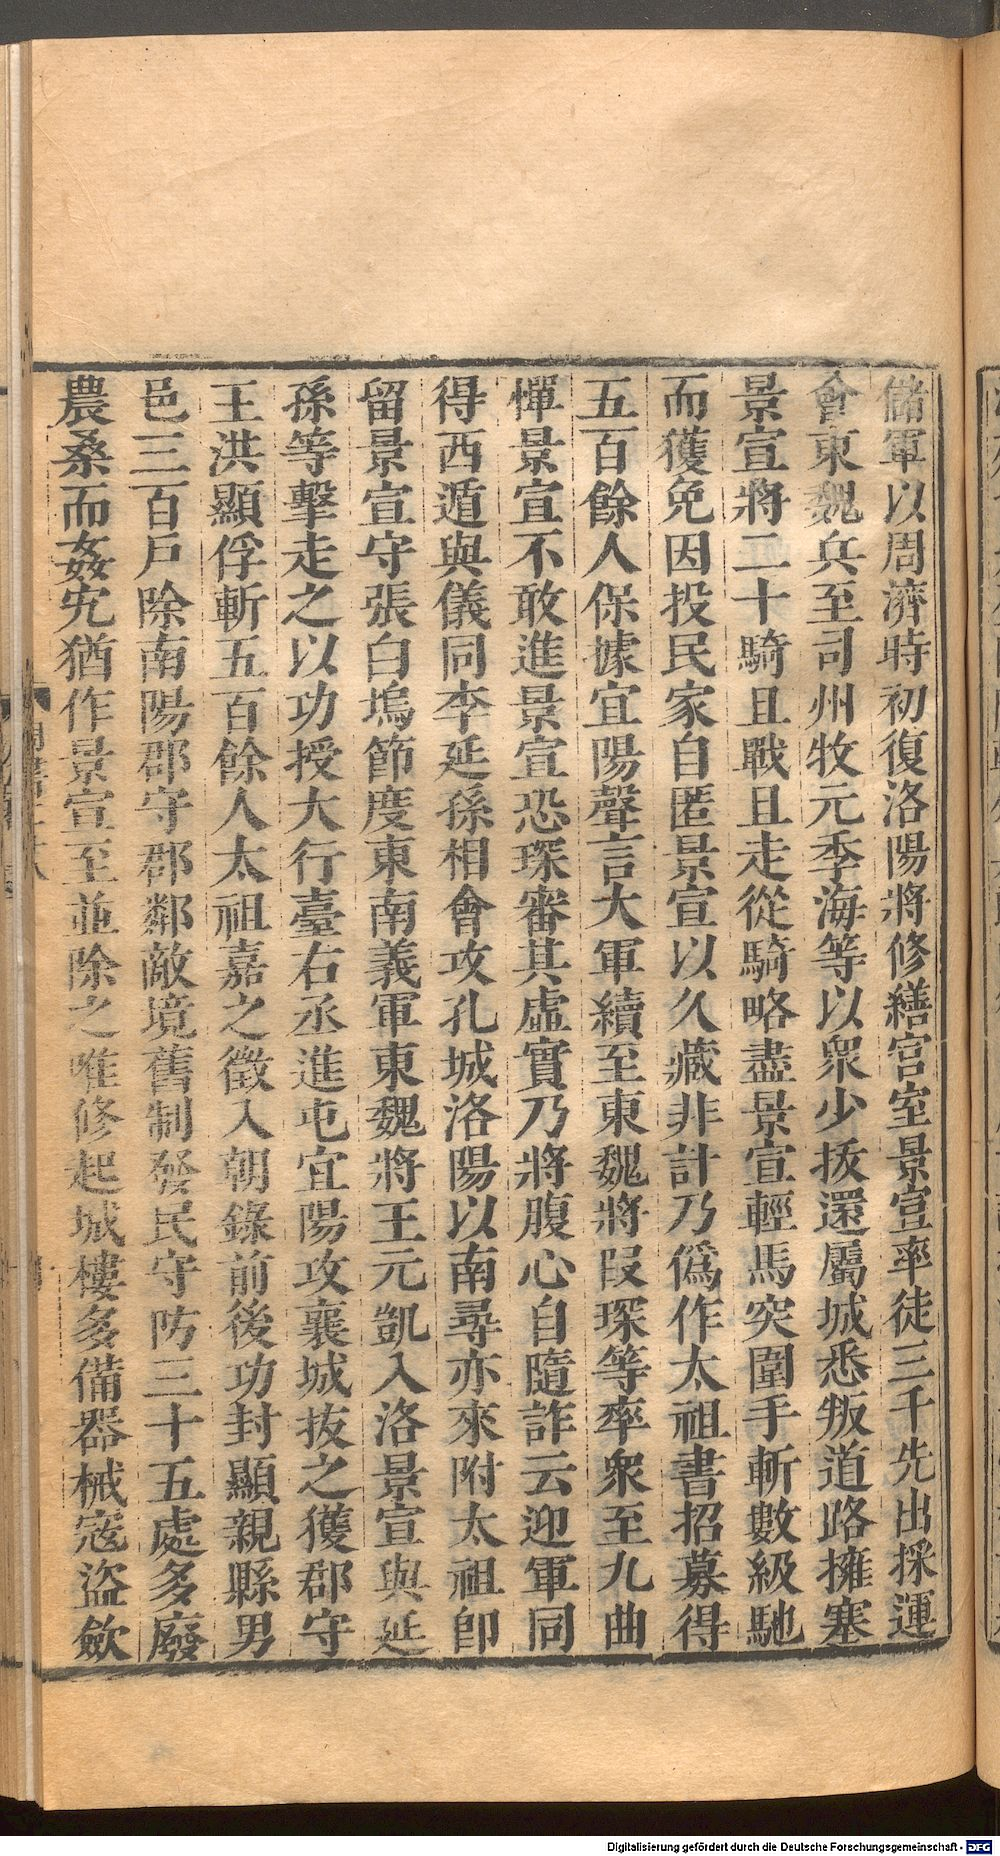 儲軍以周濟時初復洛陽將修繕宫室景宣率徒三千先出採運
會東魏兵至司州牧元季海等以衆少拔還屬城悉叛道路擁塞
景宣將二十騎且戰且走從騎略盡景宣輕馬突圍手斬數級馳
而獲免因投民家自匿景宣以久藏非計乃僞作太祖書招募得
五百餘人保據宜陽聲言大軍續至東魏將段琛等率衆至九曲
憚景宣不敢進景宣恐琛審其虛實乃將腹心自隨詐云迎軍同
得西遁與儀同李延孫相會攻孔城洛陽以南尋亦來附太祖即
留景宣守張白塢節度東南義軍東魏將王元凱入洛景宣與延
孫等擊走之以功授大行臺右丞進屯宜陽攻襄城拔之獲郡守
王洪顯俘斬五百餘人太祖嘉之徵入朝錄前後功封顯親縣男
邑三百戶除南陽郡守郡鄰敵境舊制發民守防三十五處多廢
農桑而姦宄猶作景宣至並除之唯修起城樓多備器械寇盜斂
Digitalisierung gefördert durch die Deutsche Forschungsgemeinschaft - DFG